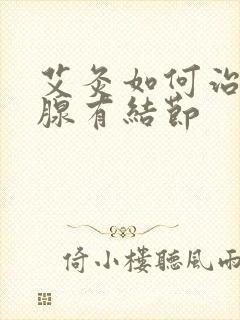 艾灸如何治
腺有結節
倚小樓聽風雨